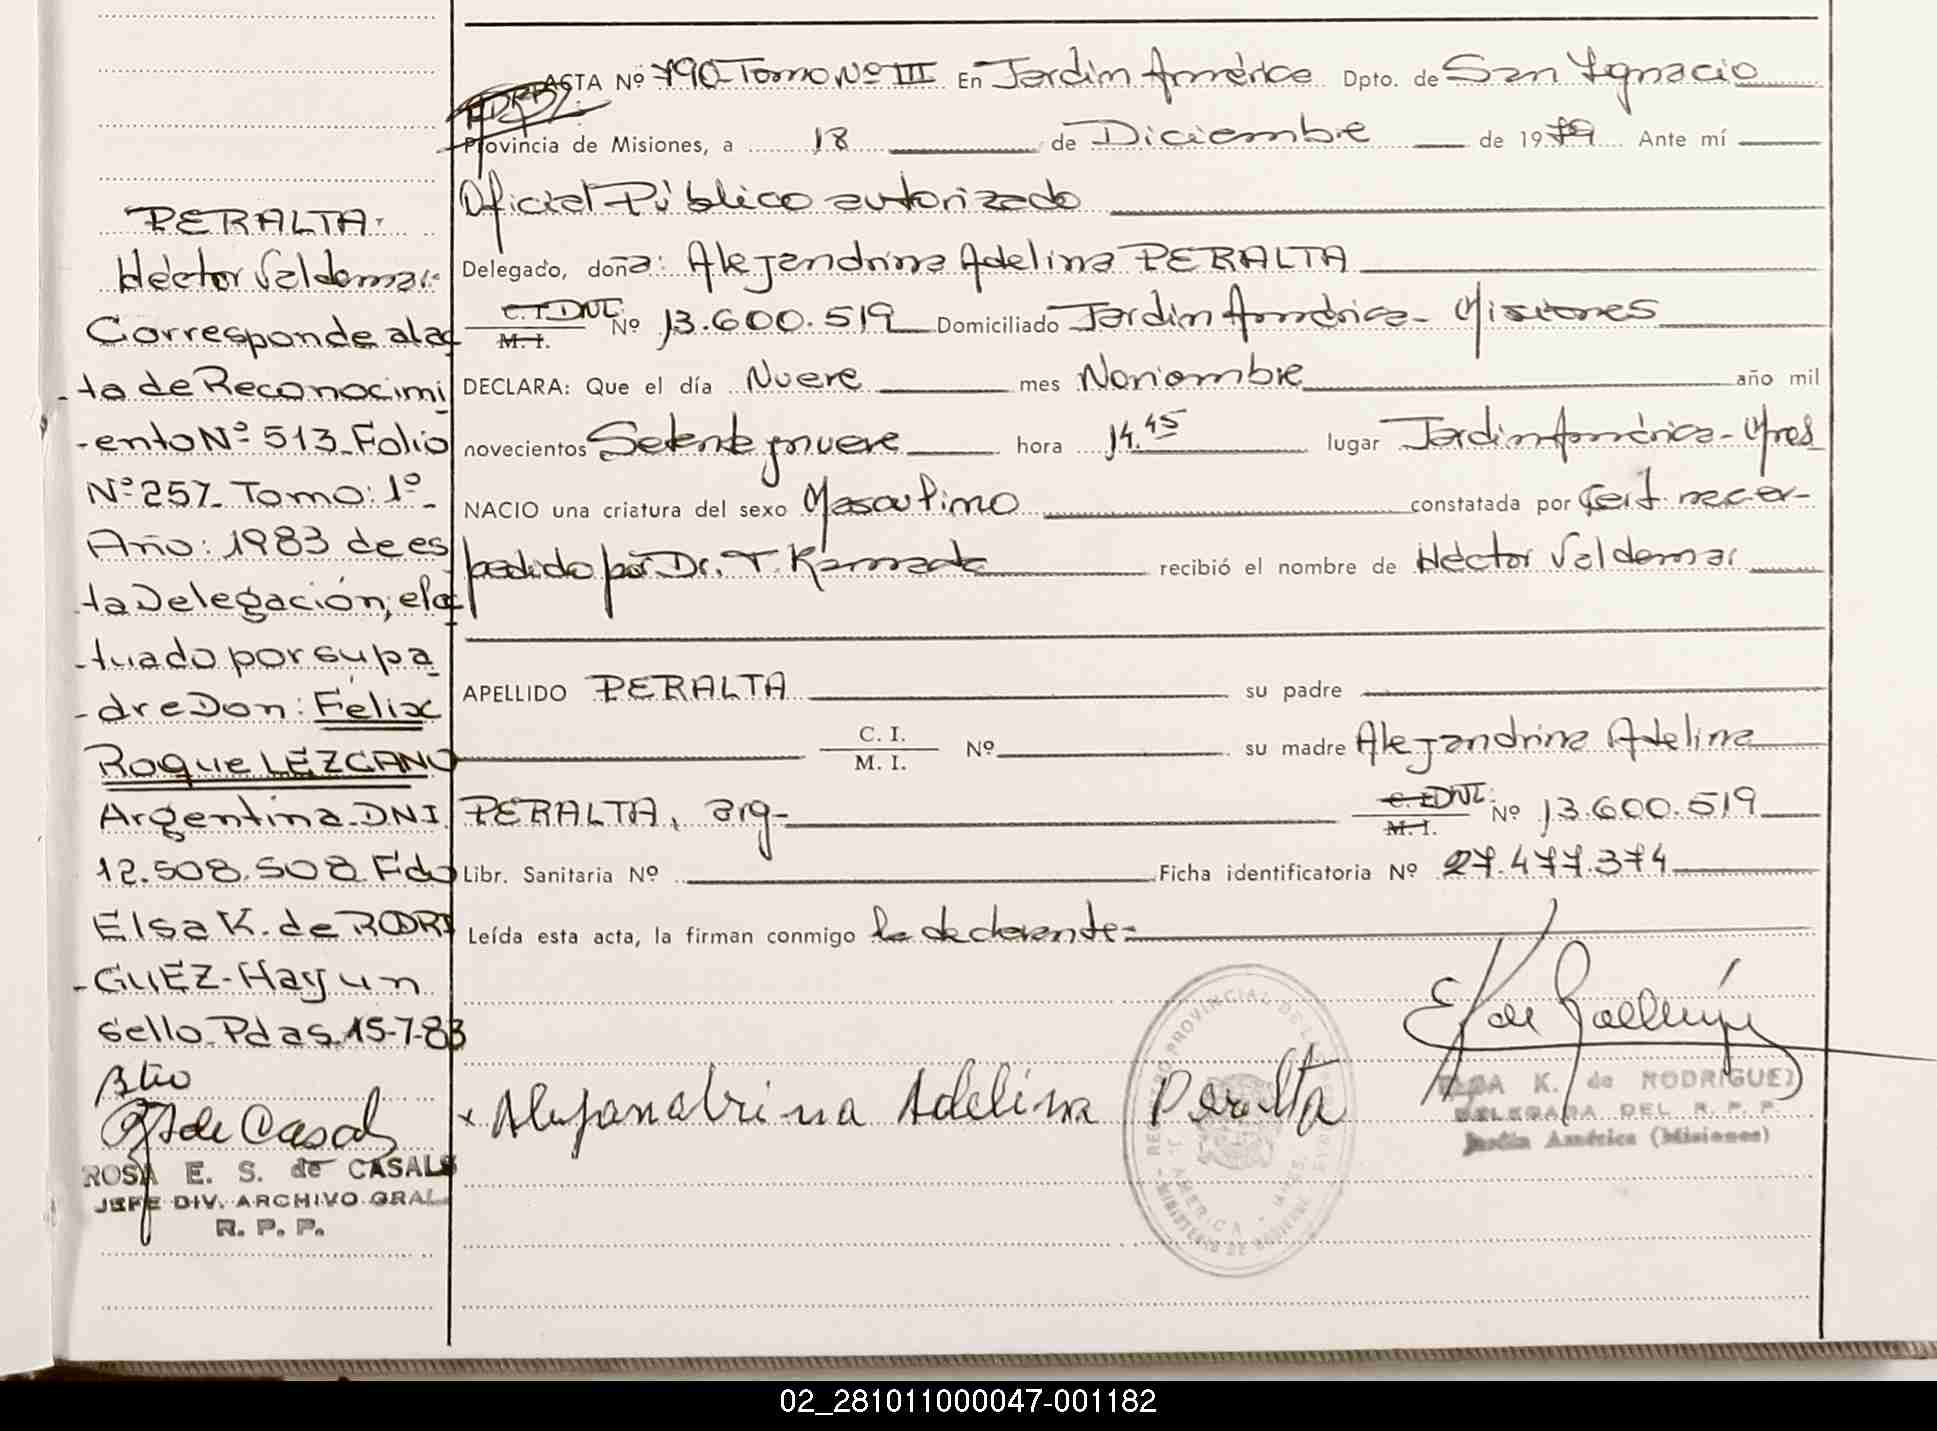 ACTA Nº 790 Tomo Nº III En Jardin América Dpto. de San Ignacio
Provincia de Misiones, a 18 de Diciembre de 1979 Ante mí
Oficial Público autorizado
Delegado, doña: Alejandrina Adelina PERALTA
C.I. DNI. M.I. Nº 13.600.519 Domiciliado Jardin América - Misiones
DECLARA: Que el día Nueve mes Noviembre año mil
novecientos Setenta y nueve hora 14.45 lugar Jardin América - Mnes
NACIO una criatura del sexo Masculino constatada por Cert. nac. ex-
pedido por Dr. T. Kamada recibió el nombre de Héctor Valdemar
APELLIDO PERALTA su padre
C. I. M. I. Nº su madre Alejandrina Adelina
PERALTA, arg- C.I. DNI. M.I. Nº 13.600.519
Libr. Sanitaria Nº Ficha identificatoria Nº 27.477.374
Leída esta acta, la firman conmigo la declarante=
Alejandrina Adelina Peralta
ELSA K. de RODRIGUEZ
DELEGADA DEL R. P. P.
Jardín América (Misiones)
REGISTRO PROVINCIAL DE LAS PERSONAS
MINISTERIO DE GOBIERNO
AMERICA - MNES.
PERALTA:
Héctor Valdemar.
Corresponde al ac
-ta de Reconocimi
-ento Nº 513 Folio
Nº 257 Tomo: 1º
Año: 1983 de es
-ta Delegación, efec
-tuado por su pa
-dre Don: Félix
Roque LEZCANO
Argentina. DNI
12.508.508. Fdo
Elsa K. de RODRI
-GUEZ- Hay un
sello. Pdas. 15-7-83
de Casals
ROSA E. S. de CASALS
JEFE DIV. ARCHIVO GRAL
R. P. P.
02_281011000047-001182